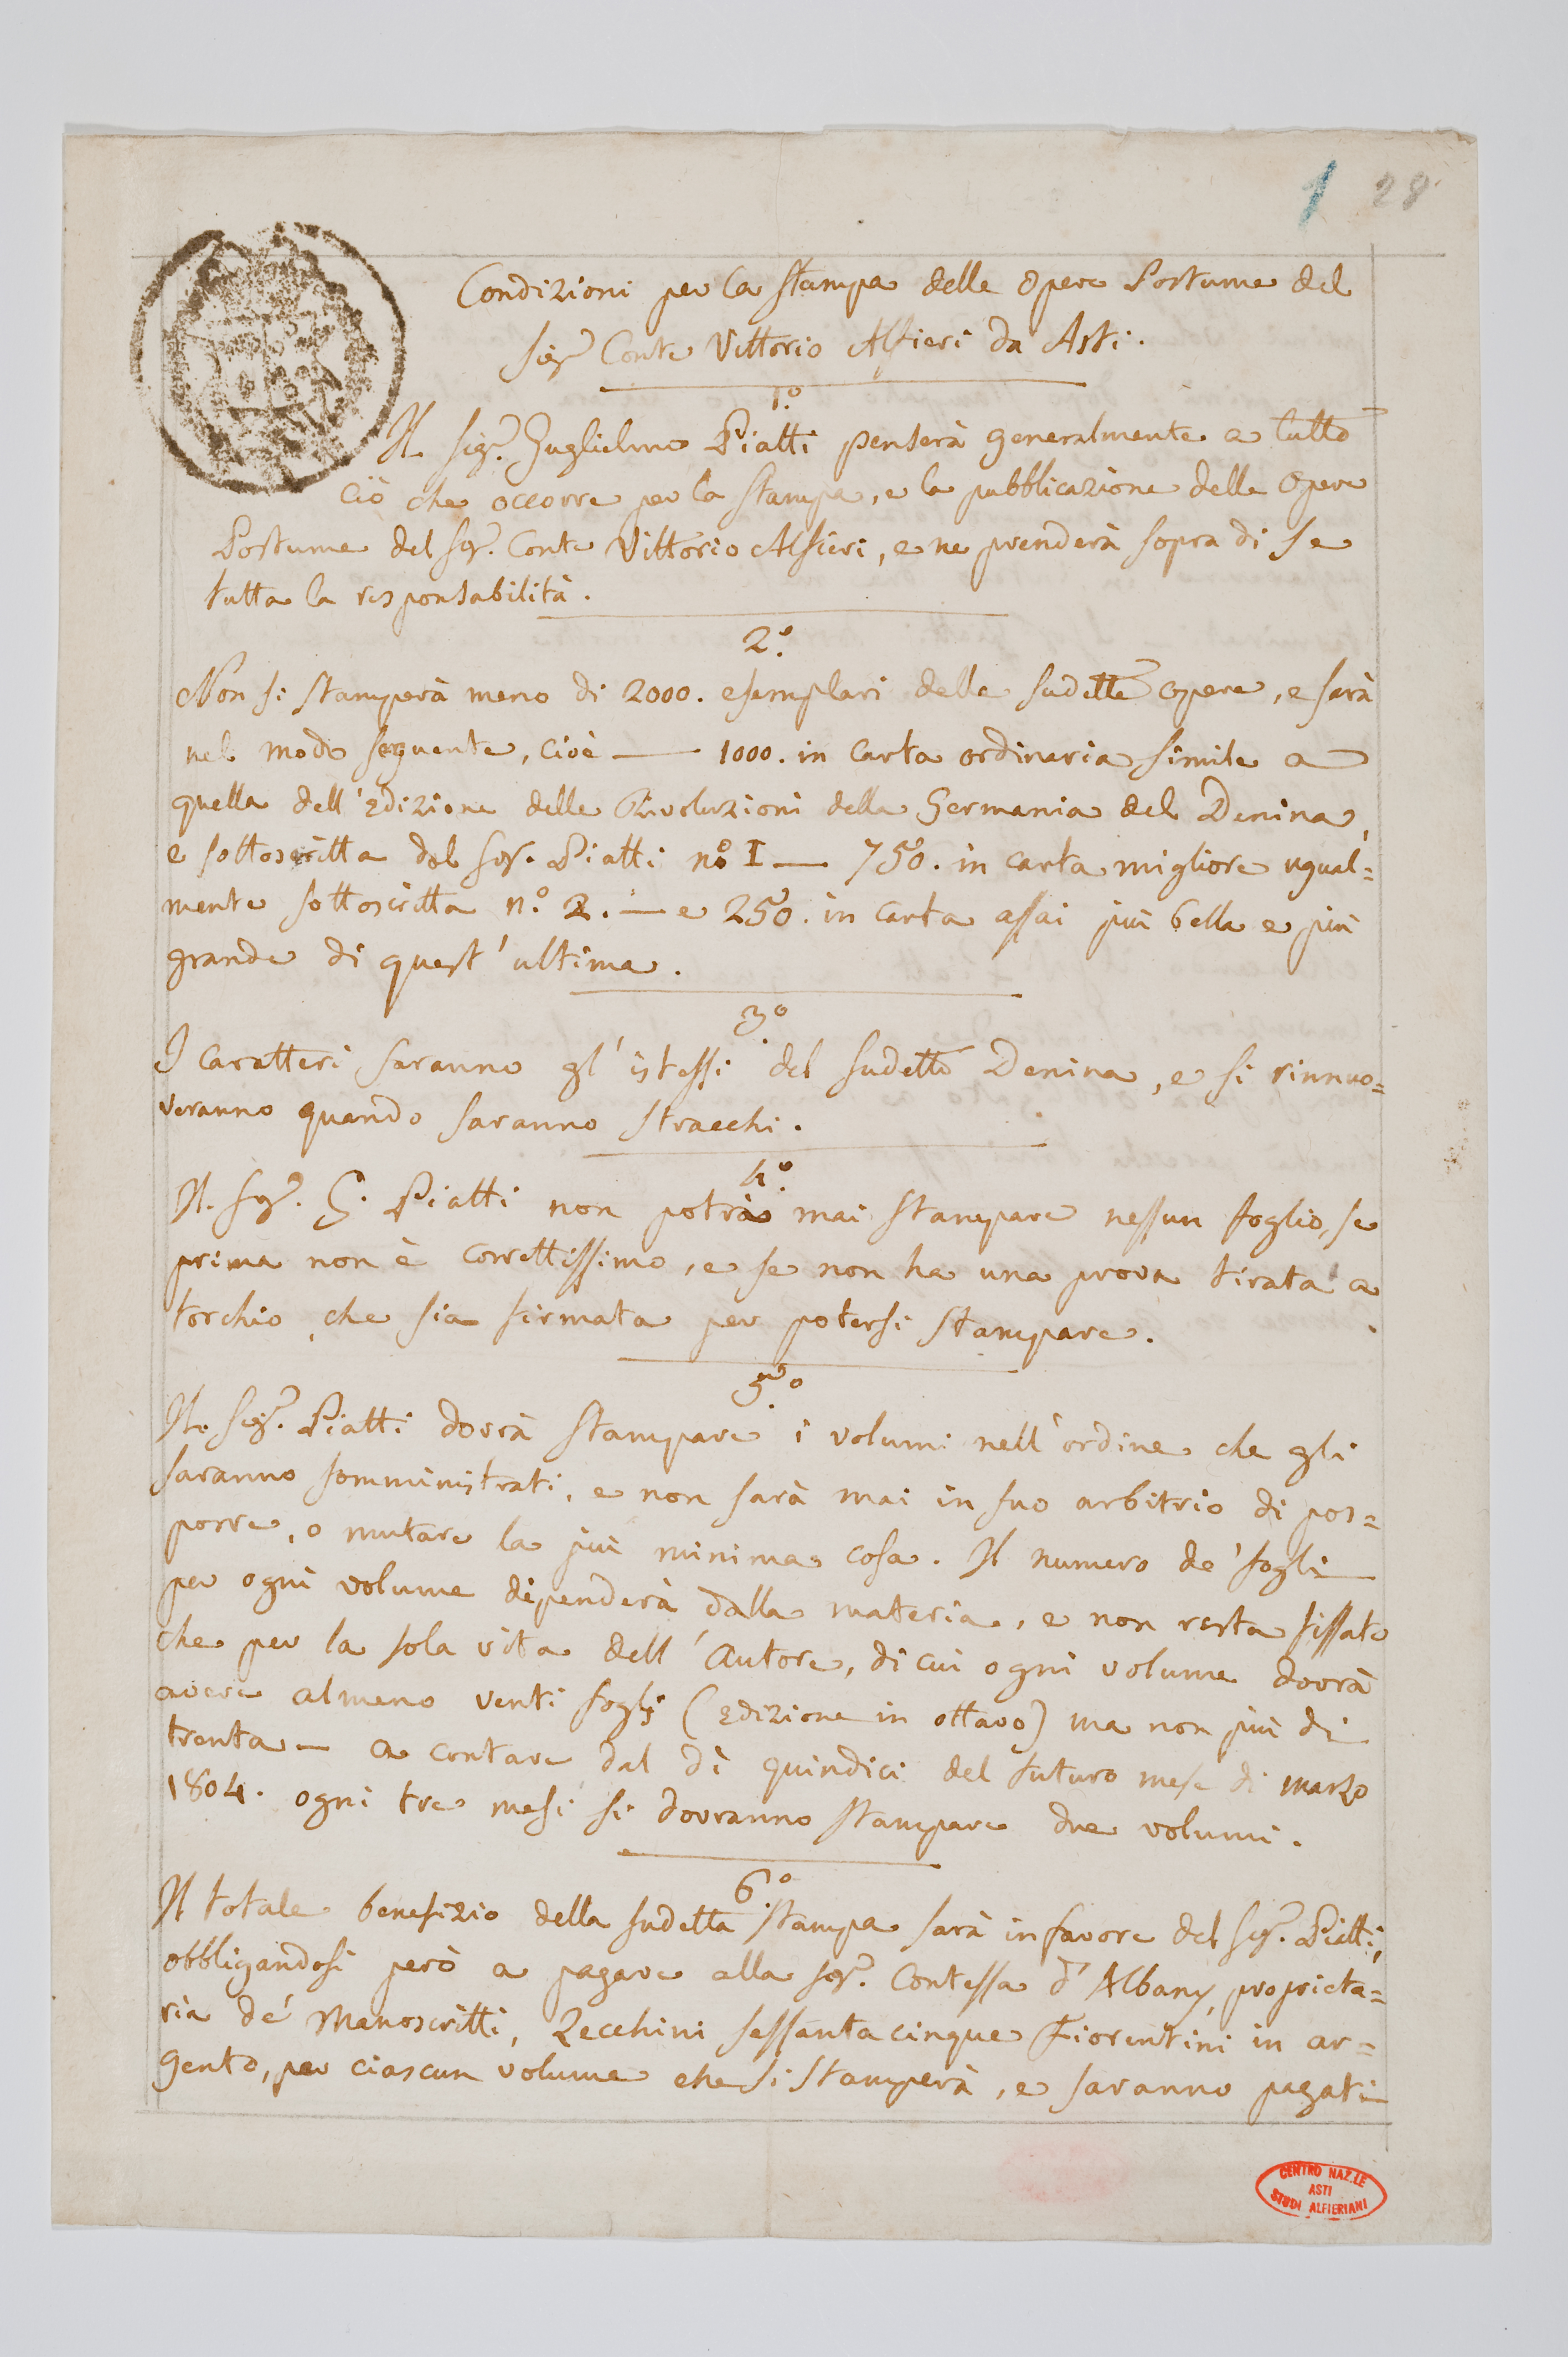 1 28
Condizioni per la stampa delle Opere Postume del
Sig.r Conte Vittorio Alfieri da Asti.
1.º
Il Sig.r Guglielmo Piatti penserà generalmente a tutto
ciò che occorre per la stampa, e la pubblicazione delle Opere
Postume del Sig.r Conte Vittorio Alfieri, e ne prenderà sopra di se
tutta la responsabilità.
2.º
Non si stamperà meno di 2000. esemplari delle sudette opere, e sarà
nel modo seguente, cioè — 1000. in carta ordinaria simile a
quella dell'Edizione delle Rivoluzioni della Germania del Denina,
e sottoscritta dal Sig.r Piatti nº I — 750. in carta migliore ugual=
mente sottoscritta n.º 2. — e 250. in carta assai più bella e più
grande di quest'ultima.
3.º
I caratteri saranno gl'istessi del sudetto Denina, e si rinnuo=
veranno quando saranno stracchi.
4.º
Il Sig.r G. Piatti non potrà mai stampare nessun foglio, se
prima non è correttissimo, e se non ha una prova tirata a
torchio, che sia firmata per potersi stampare.
5.º
Il Sig.r Piatti dovrà stampare i volumi nell'ordine che gli
saranno somministrati, e non sarà mai in suo arbitrio di pos=
porre, o mutare la più minima cosa. Il numero de' fogli
per ogni volume dipenderà dalla materia, e non resta fissato
che per la sola vita dell'Autore, di cui ogni volume dovrà
avere almeno venti fogli (Edizione in ottavo) ma non più di
trenta — a contare dal dì quindici del futuro mese di marzo
1804. ogni tre mesi si dovranno stampare due volumi.
6.º
Il totale benefizio della sudetta stampa sarà in favore del Sig.r Piatti,
obbligandosi però a pagare alla Sig.r Contessa d'Albany, proprieta=
ria de' Manoscritti, Zecchini sessantacinque Fiorentini in ar=
gento, per ciascun volume che si stamperà, e saranno pagati
CENTRO NAZ.LE
ASTI
STUDI ALFIERIANI